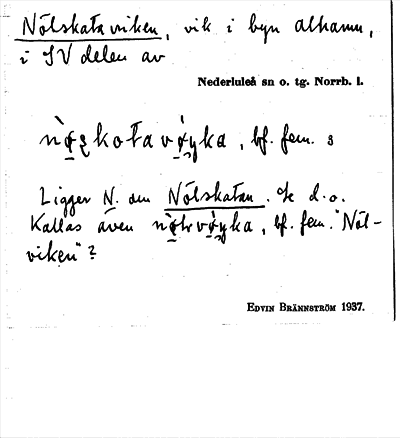 Nölskataviken, vik i byn Alhamn,
i SV delen av
Nederluleå sn o. tg. Norrb. l.
bf. fem.
Ligger N. om Nölskatan. Se d.o.
Kallas även bf. fem. "Nöl-
viken"?
EDVIN BRÄNNSTRÖM 1937.